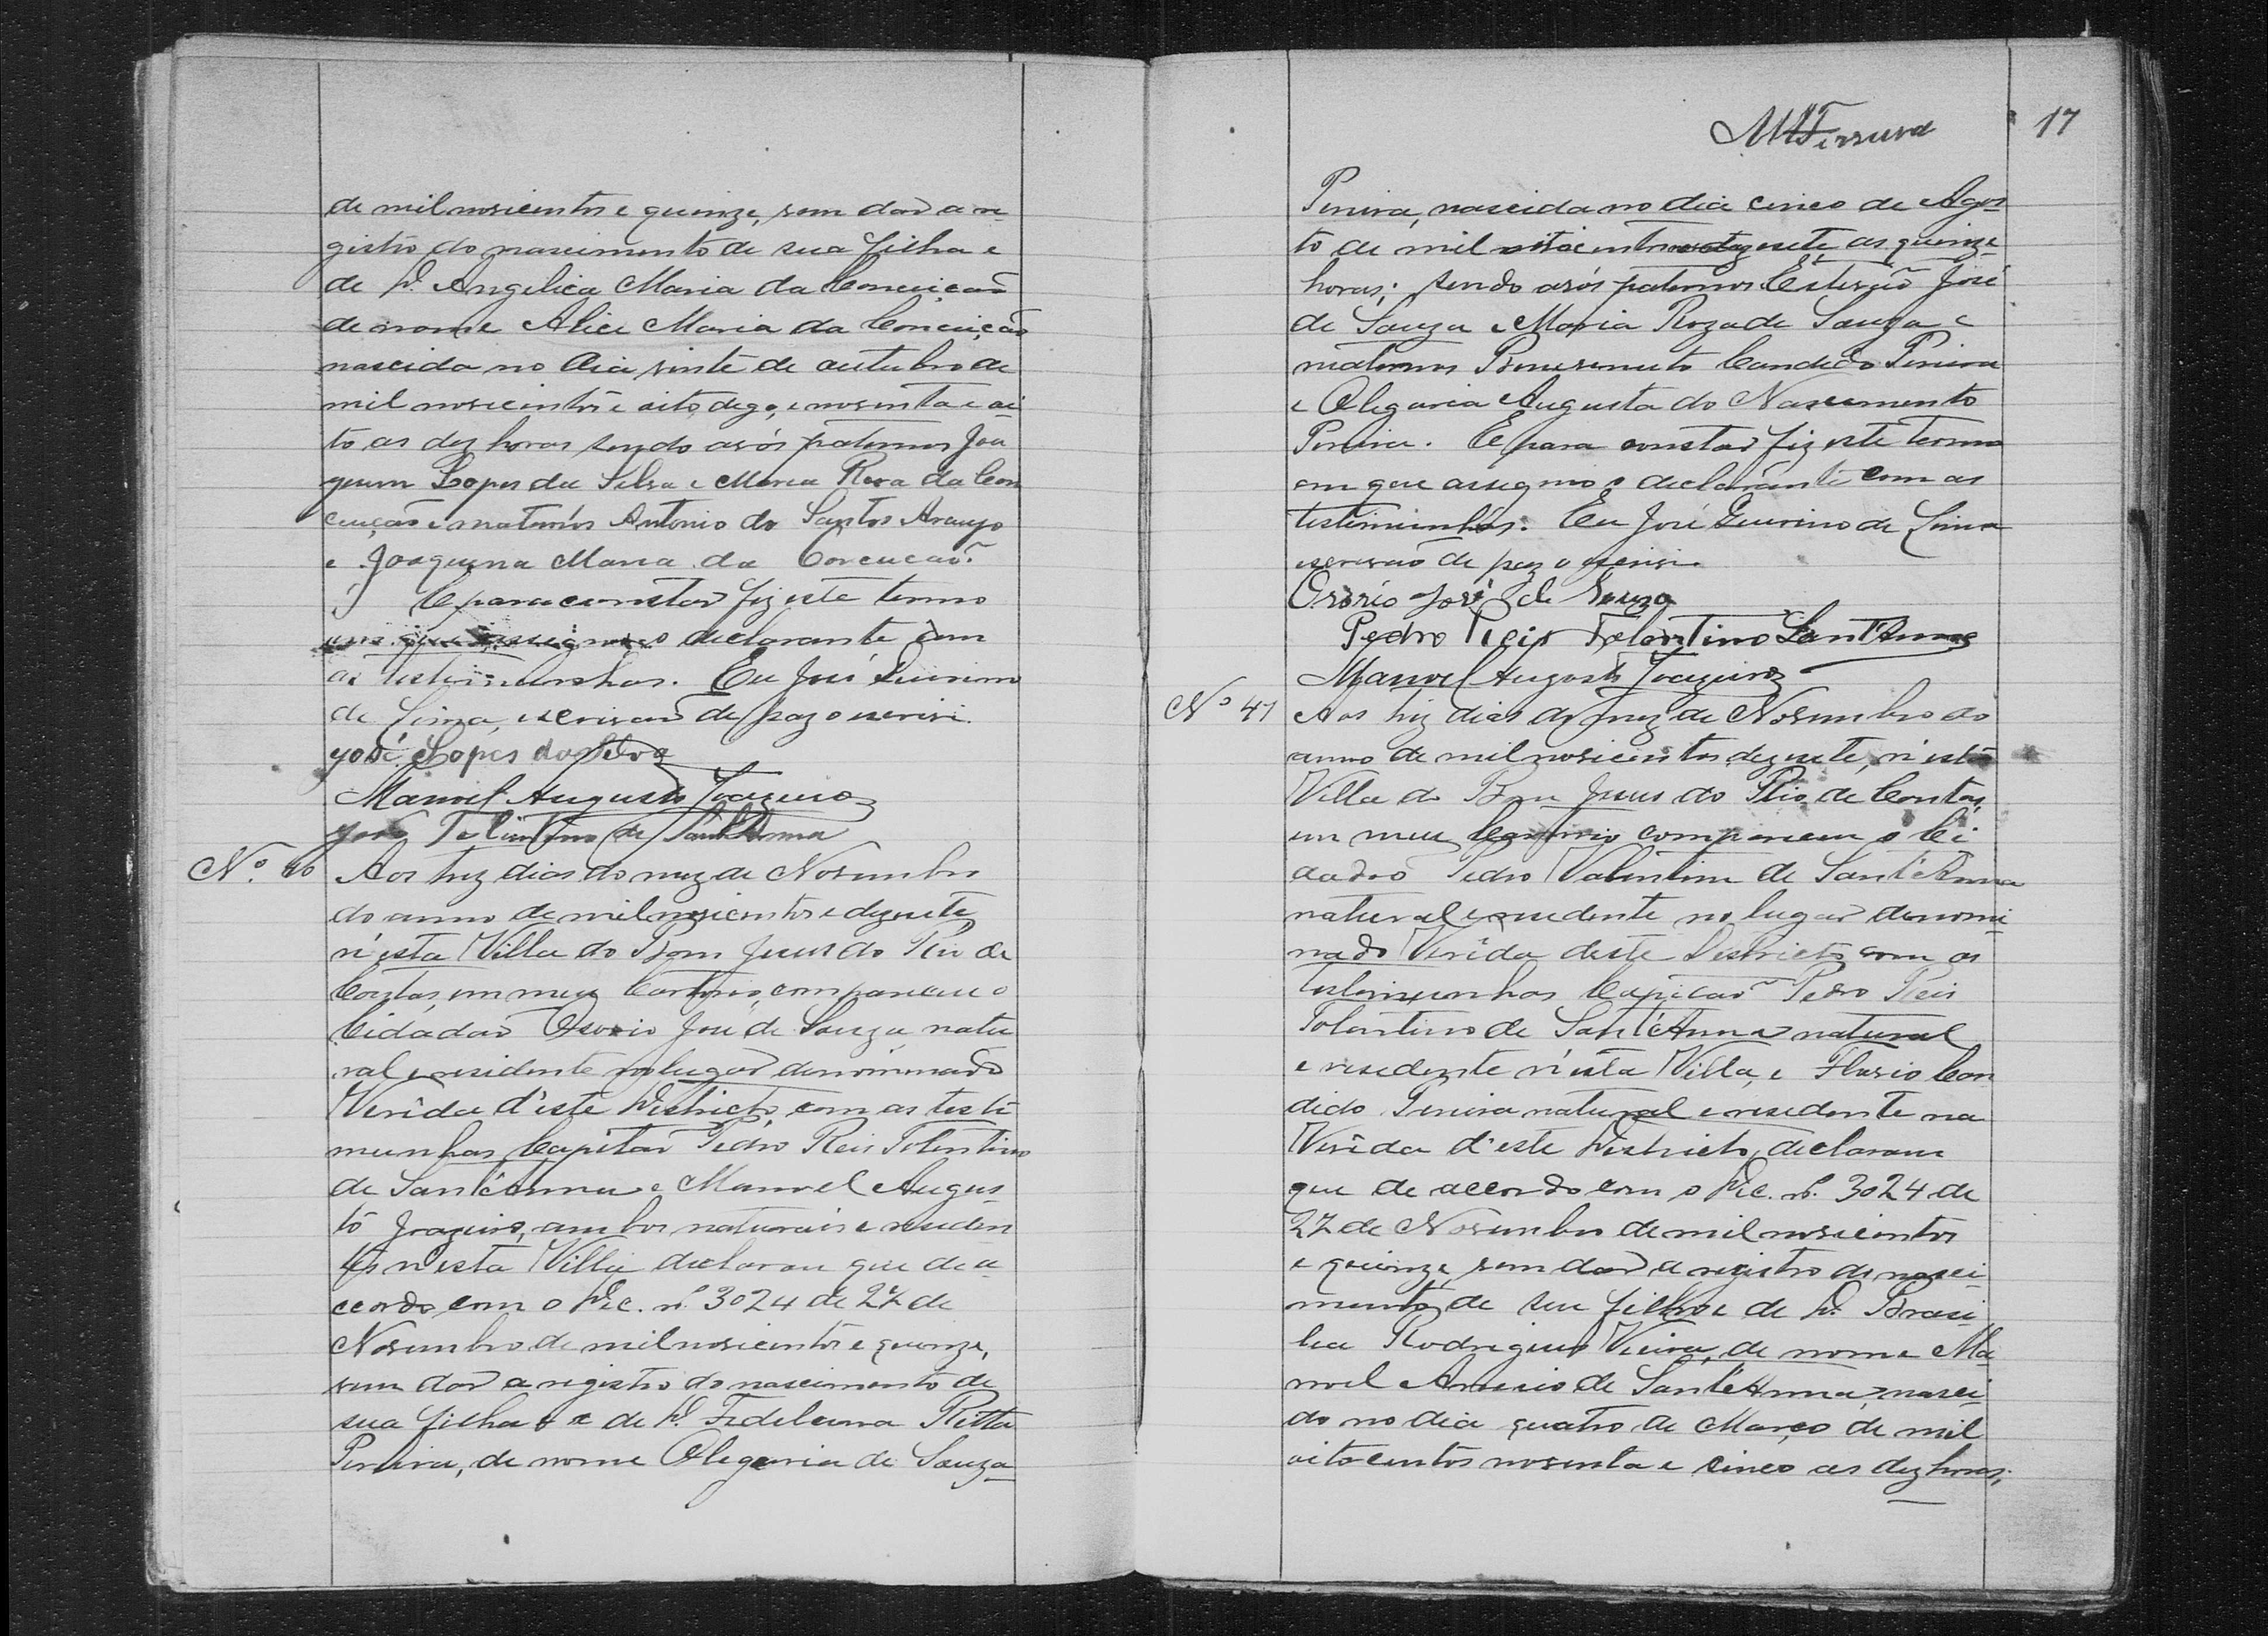 de mil novicentos e quinze, vem dar a re
gistro do nascimento de sua filha e
de D. Angelica Maria da Conceição
de nome Alice Maria da Conceição
nascida no dia vinte de outubro de
mil novicentos e oito, digo, e noventa e oi
to as dez horas sendo avós paternos Joa
quim Lopes da Silva e Maria Roza da Con
ceição e maternos Antonio do Santos Araujo
e Joaquina Maria da Conceicão.
E para constar fiz este termo
em que assignao o declarante com
as testimunhas. Eu José Guirino
de Lima, escrivão de paz o escrivi.
José Lopes da Silva
Manoel Augusto Joazeiro
José Tolintino de Sant'Anna
Nº. 46 Aos trez dias do mez de Novembro
do anno de mil novicentos e dezesete,
n'esta Villa do Bom Jesus do Rio de
Contas, em meu Cartorio, compareceu o
Cidadão Osorio José de Souza, natu
ral e residente no lugar denominado
Verêda d'este Districto, com as testi
munhas Capitão Pedro Reis Tolentino
de Sant'Anna e Manoel Augus-
to Joazeiro, ambos naturais e residen
tes n'esta Villa declarou que de a-
ccordo com o Dec. nº. 3024 de 27 de
Novembro de mil novicentos e quinze,
vem dar a registro do nascimento de
sua filha e de D. Fidelcina Ritta
Pereira, de nome Olegaria de Souza
17
Pereira, nascida no dia cinco de Agos-
to de mil dezesete, as quinze
horas; sendo avós paternos Estevão José
de Souza e Maria Roza de Souza e
maternos Bemvenuto Candido Pereira
e Olegaria Augusta do Nascimento
Pereira. E para constar fiz este termo
em que assigno o declarante com as
testimunhas. Eu José Guirino de Lima
escrivão de paz o escrivi.
Osório José de Souza
Pedro Reis Tolentino Sant'Anna
Manoel Augusto Joazeiro
Nº 47 Aos trez dias do mez de Novembro do
anno de mil novicentos dezesete, n'esta
Villa do Bom Jesus do Rio de Contas,
em meu Cartorio compareceu o Ci
dadão Pedro Valentim de Sant'Anna
natural e residente no lugar denomi-
nado Verêda deste Districto com as
testimunhas Capitão Pedro Reis
Tolentino de Sant'Anna natural
e resedente n'esta Villa, e Flavio Can
dido Pereira natural e residente na
Verêda d'este Districto, declarou
que de accordo com o Dec. nº. 3024 de
27 de Novembro de mil novicentos
e quinze, vem dar a registro do nasci-
mento de seu filho e de D. Brasi-
lia Rodrigues Vieira, de nome Ma-
noel Americo de Sant'Anna, nasci-
do no dia quatro de Março de mil
oitocentos noventa e cinco as dez horas;